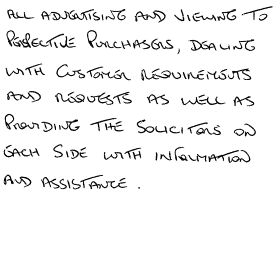 ALL ADVERTISING AND VIEWING TO
PERSPECTIVE PURCHASERS, DEALING
WITH CUSTOMER REQUIREMENTS
AND REQUESTS AS WELL AS
PROVIDING THE SOLICITORS ON
EACH SIDE WITH INFORMATION
AND ASSISTANCE.